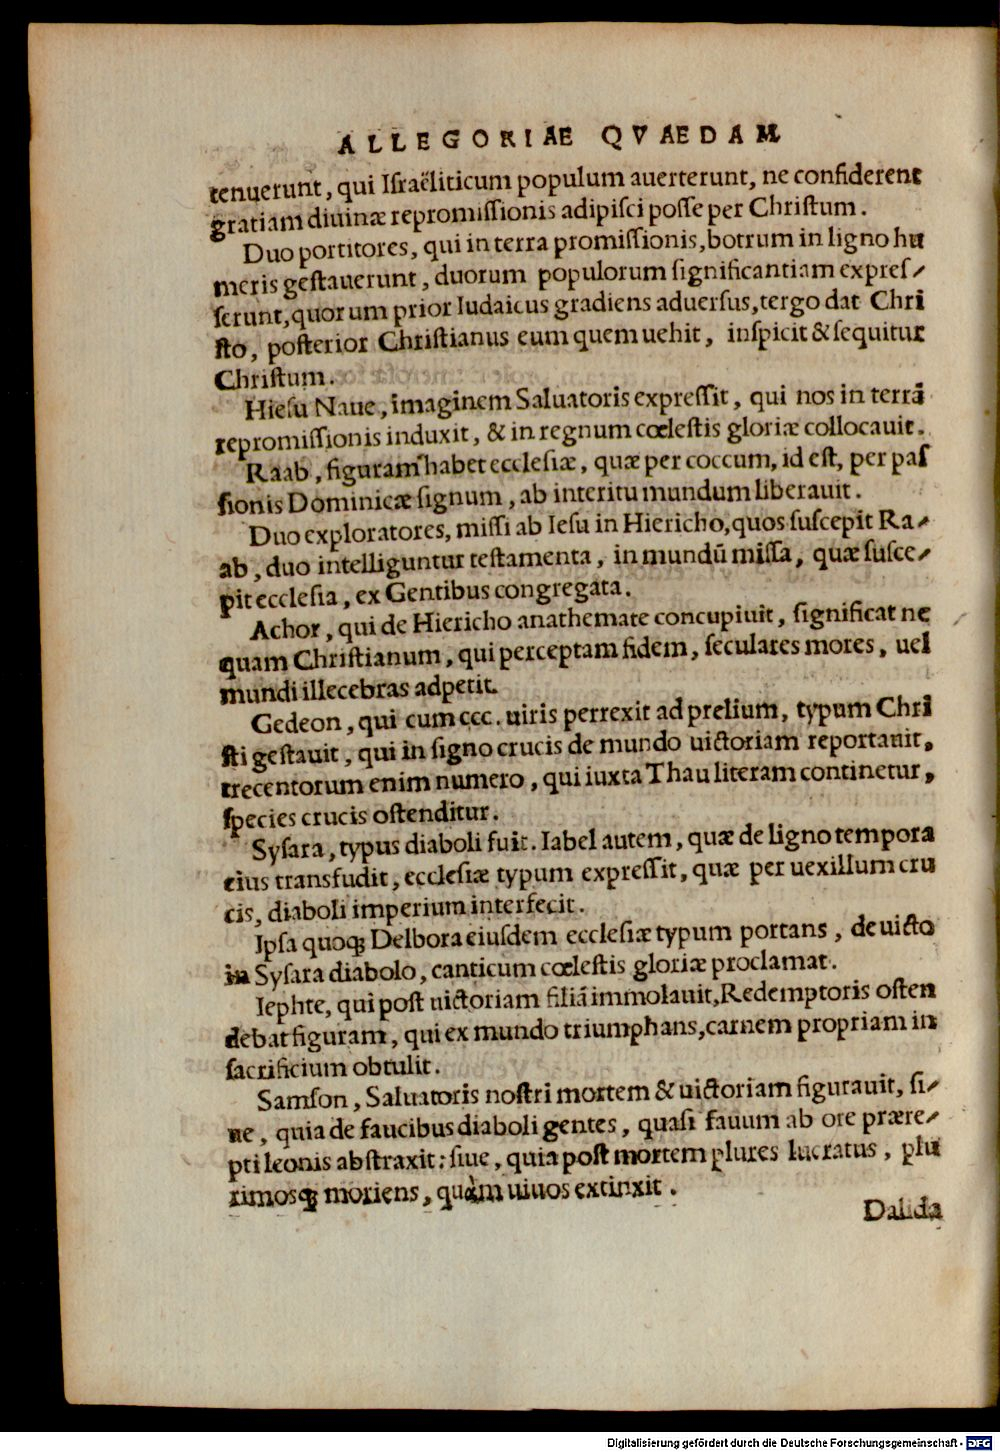 ALLEGORIAE QVAEDAM
tenuerunt, qui Iſraëliticum populum auerterunt, ne confiderent
gratiam diuinæ repromiſſionis adipiſci poſſe per Chriſtum.
Duo portitores, qui in terra promiſſionis, botrum in ligno hu
meris geſtauerunt, duorum populorum ſignificantiam expreſ-
ſerunt, quorum prior Iudaicus gradiens aduerſus, tergo dat Chri
ſto, poſterior Chriſtianus eum quem uehit, inſpicit & ſequitur
Chriſtum.
Hieſu Naue, imaginem Saluatoris expreſſit, qui nos in terrā
repromiſſionis induxit, & in regnum cœleſtis gloriæ collocauit.
Raab, figuram habet eccleſiæ, quæ per coccum, id eſt, per paſ
ſionis Dominicæ ſignum, ab interitu mundum liberauit.
Duo exploratores, miſſi ab Ieſu in Hiericho, quos ſuſcepit Ra-
ab, duo intelliguntur teſtamenta, in mundū miſſa, quæ ſuſce-
pit eccleſia, ex Gentibus congregata.
Achor, qui de Hiericho anathemate concupiuit, ſignificat ne
quam Chriſtianum, qui perceptam fidem, ſeculares mores, uel
mundi illecebras adpetit.
Gedeon, qui cum ccc. uiris perrexit ad prelium, typum Chri
ſti geſtauit, qui in ſigno crucis de mundo uictoriam reportauit,
trecentorum enim numero, qui iuxta Thau literam continetur,
ſpecies crucis oſtenditur.
Syſara, typus diaboli fuit. Iabel autem, quæ de ligno tempora
eius transfudit, eccleſiæ typum expreſſit, quæ per uexillum cru
cis, diaboli imperium interfecit.
Ipſa quoqȝ Delbora eiuſdem eccleſiæ typum portans, de uicto
in Syſara diabolo, canticum cœleſtis gloriæ proclamat.
Iephte, qui poſt uictoriam filiā immolauit, Redemptoris oſten
debat figuram, qui ex mundo triumphans, carnem propriam in
ſacrificium obtulit.
Samſon, Saluatoris noſtri mortem & uictoriam figurauit, ſi-
ue, quia de faucibus diaboli gentes, quaſi fauum ab ore prære-
pti leonis abſtraxit: ſiue, quia poſt mortem plures lucratus, plu
rimosqȝ moriens, quàm uiuos extinxit.
Dalida
Digitalisierung gefördert durch die Deutsche Forschungsgemeinschaft - DFG